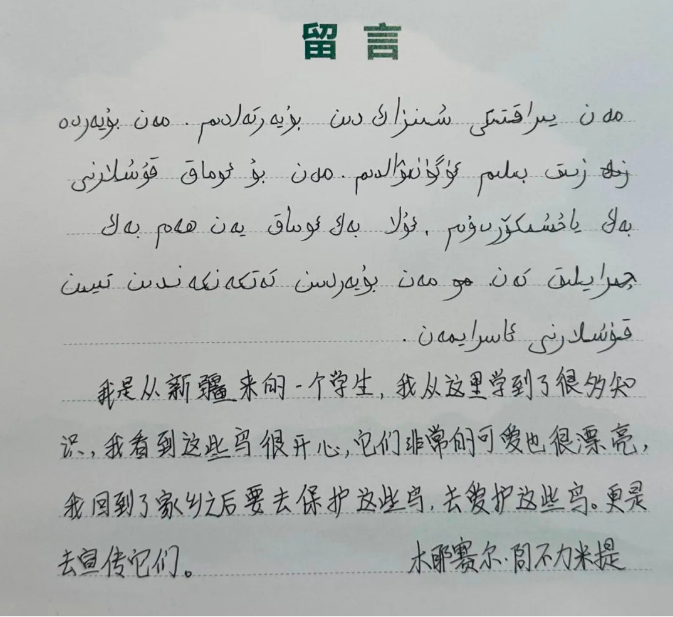 留言
مەن يىراقتىكى شىنجاڭ دىن بۇيەرگەلدىم. مەن بۇيەردە
بىلىم ئۈگۈنۈۋالدىم. مەن بۇ ئوماق قۇشلارنى
بەك ياخشىكۆردۈم. ئۇلا بەك ئوماق يەن ھەم بەك
چىرايلىق كەن. مەن بۇيەردىن كەتكەنكەندىن كىيىن
قۇشلارنى ئاسرايمەن.
我是从新疆来的一个学生，我从这里学到了很多知
识，我看到这些鸟很开心，它们非常的可爱也很漂亮，
我回到了家乡之后要去保护这些鸟，去爱护这些鸟。更是
去宣传它们。 木耶赛尔·阿不力米提